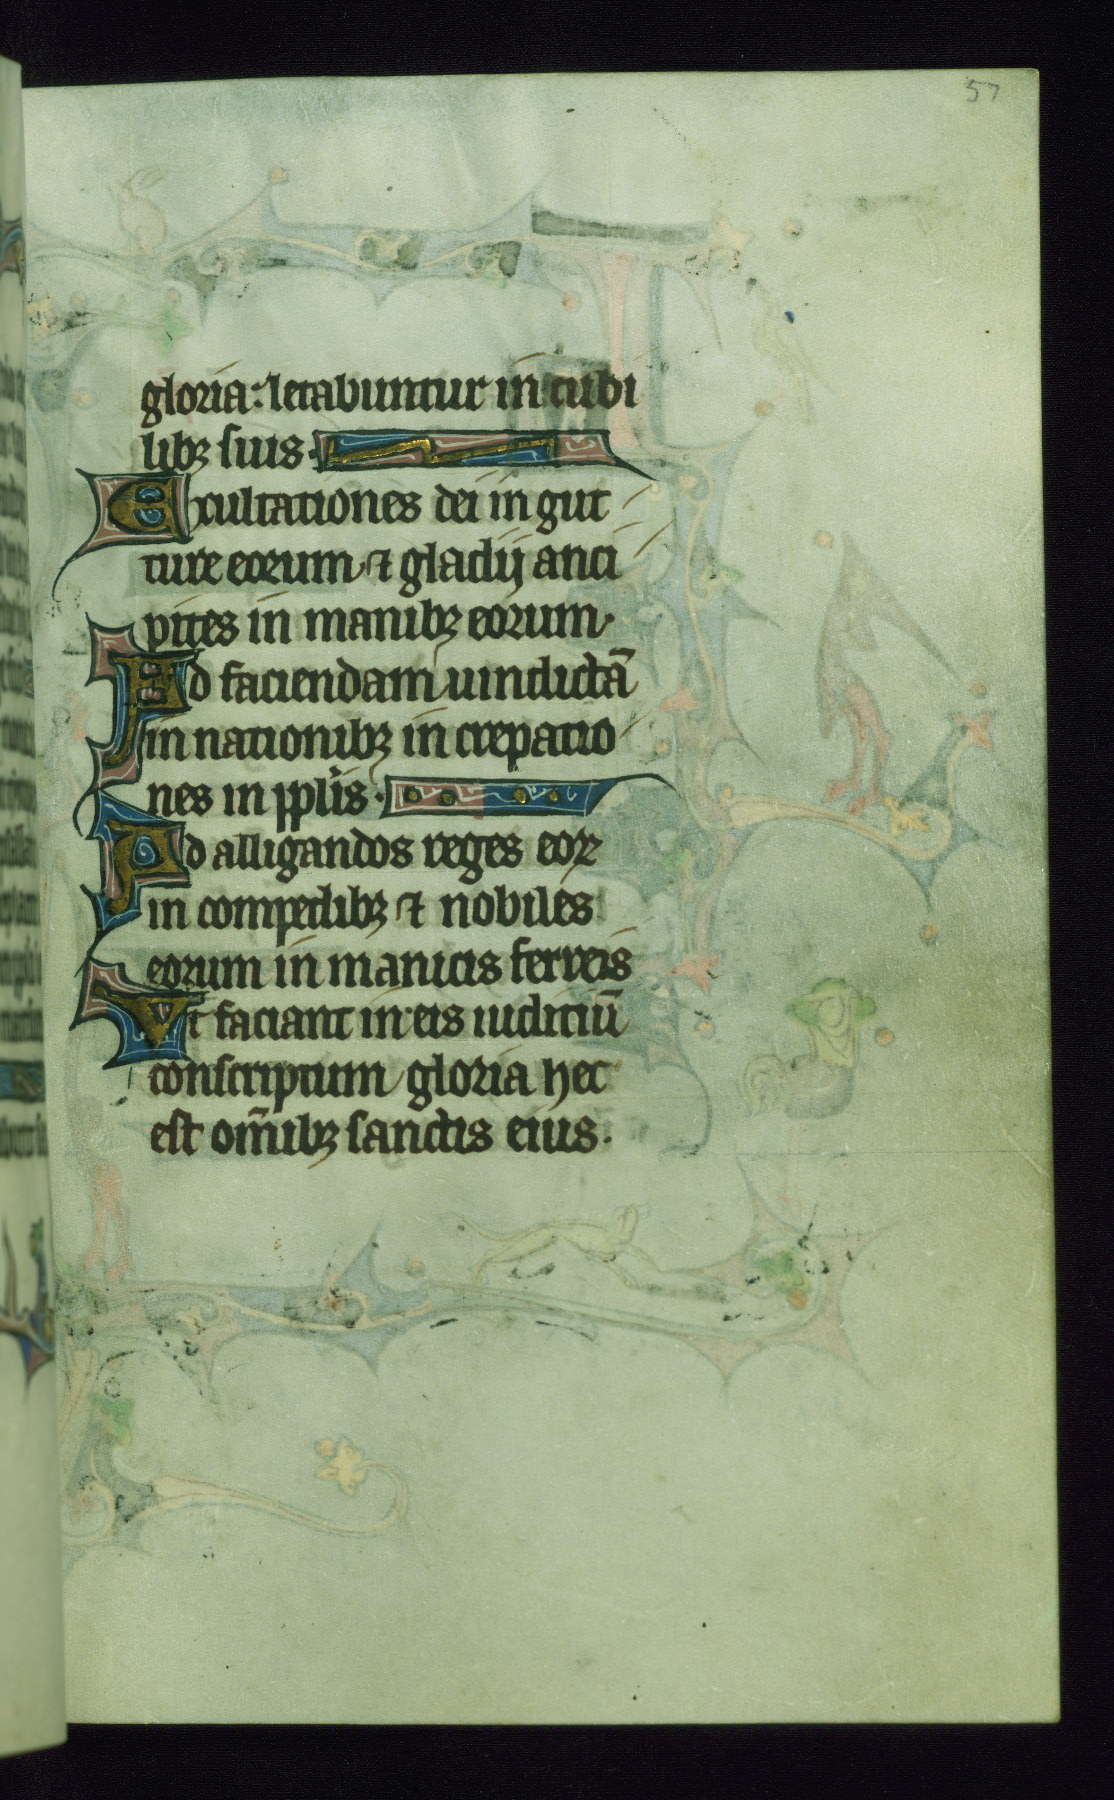 57
gloria: letabuntur in cubi
libꝫ suis.
Exultationes dei in gut
ture eorum ⁊ gladij anci
pites in manibꝫ eorum.
Ad faciendam uindictã
in nationibꝫ in crepatio
nes in ppl'is.
Ad alligandos reges eoꝝ
in compedibꝫ ⁊ nobiles
eorum in manicis ferreis
Ut faciant in eis iudiciũ
conscriptum gloria hec
est om̃ibꝫ sanctis eius.